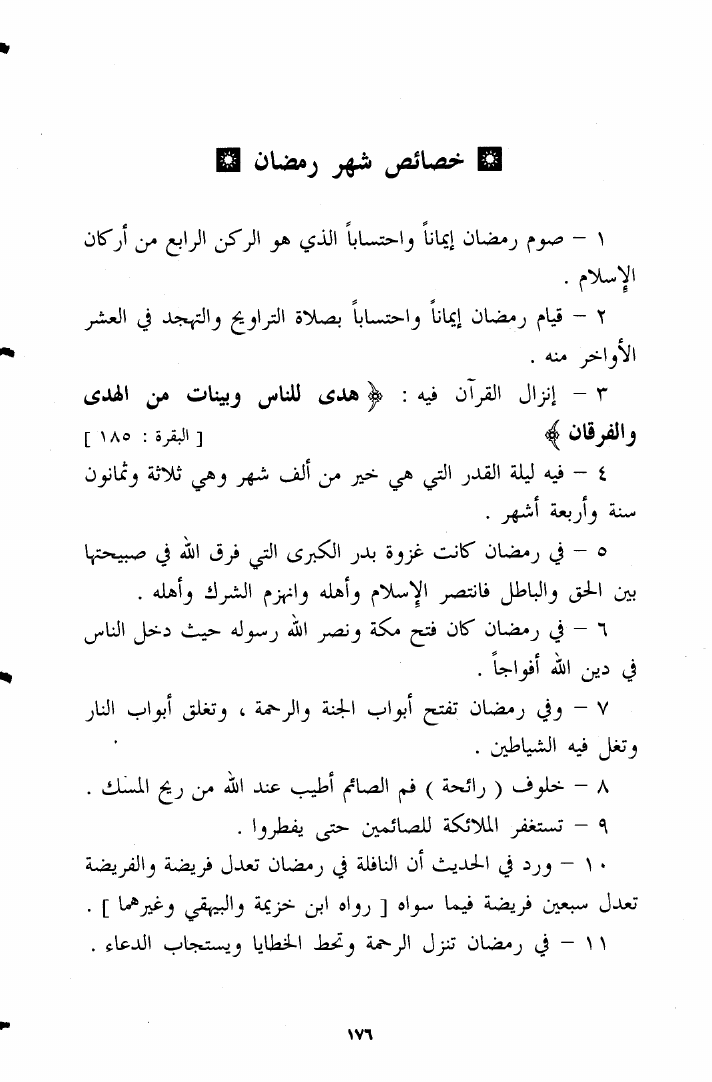 خصائص شهر رمضان
١ - صوم رمضان إيماناً واحتساباً الذي هو الركن الرابع من أركان
الإسلام .
٢ - قيام رمضان إيماناً واحتساباً بصلاة التراويح والتهجد في العشر
الأواخر منه .
٣ - إنزال القرآن فيه : ﴿ هدى للناس وبينات من الهدى
والفرقان ﴾ [ البقرة : ١٨٥ ]
٤ - فيه ليلة القدر التي هي خير من ألف شهر وهي ثلاثة وثمانون
سنة وأربعة أشهر .
٥ - في رمضان كانت غزوة بدر الكبرى التي فرق الله في صبيحتها
بين الحق والباطل فانتصر الإسلام وأهله وانهزم الشرك وأهله .
٦ - في رمضان كان فتح مكة ونصر الله رسوله حيث دخل الناس
في دين الله أفواجاً .
٧ - وفي رمضان تفتح أبواب الجنة والرحمة ، وتغلق أبواب النار
وتغل فيه الشياطين .
٨ - خلوف ( رائحة ) فم الصائم أطيب عند الله من ريح المسك .
٩ - تستغفر الملائكة للصائمين حتى يفطروا .
١٠ - ورد في الحديث أن النافلة في رمضان تعدل فريضة والفريضة
تعدل سبعين فريضة فيما سواه [ رواه ابن خزيمة والبيهقي وغيرهما ] .
١١ - في رمضان تنزل الرحمة وتحط الخطايا ويستجاب الدعاء .
١٧٦